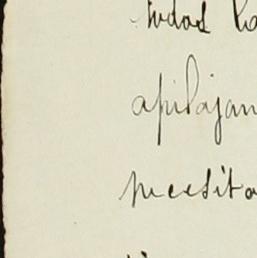 todas la
apilajan
necesita